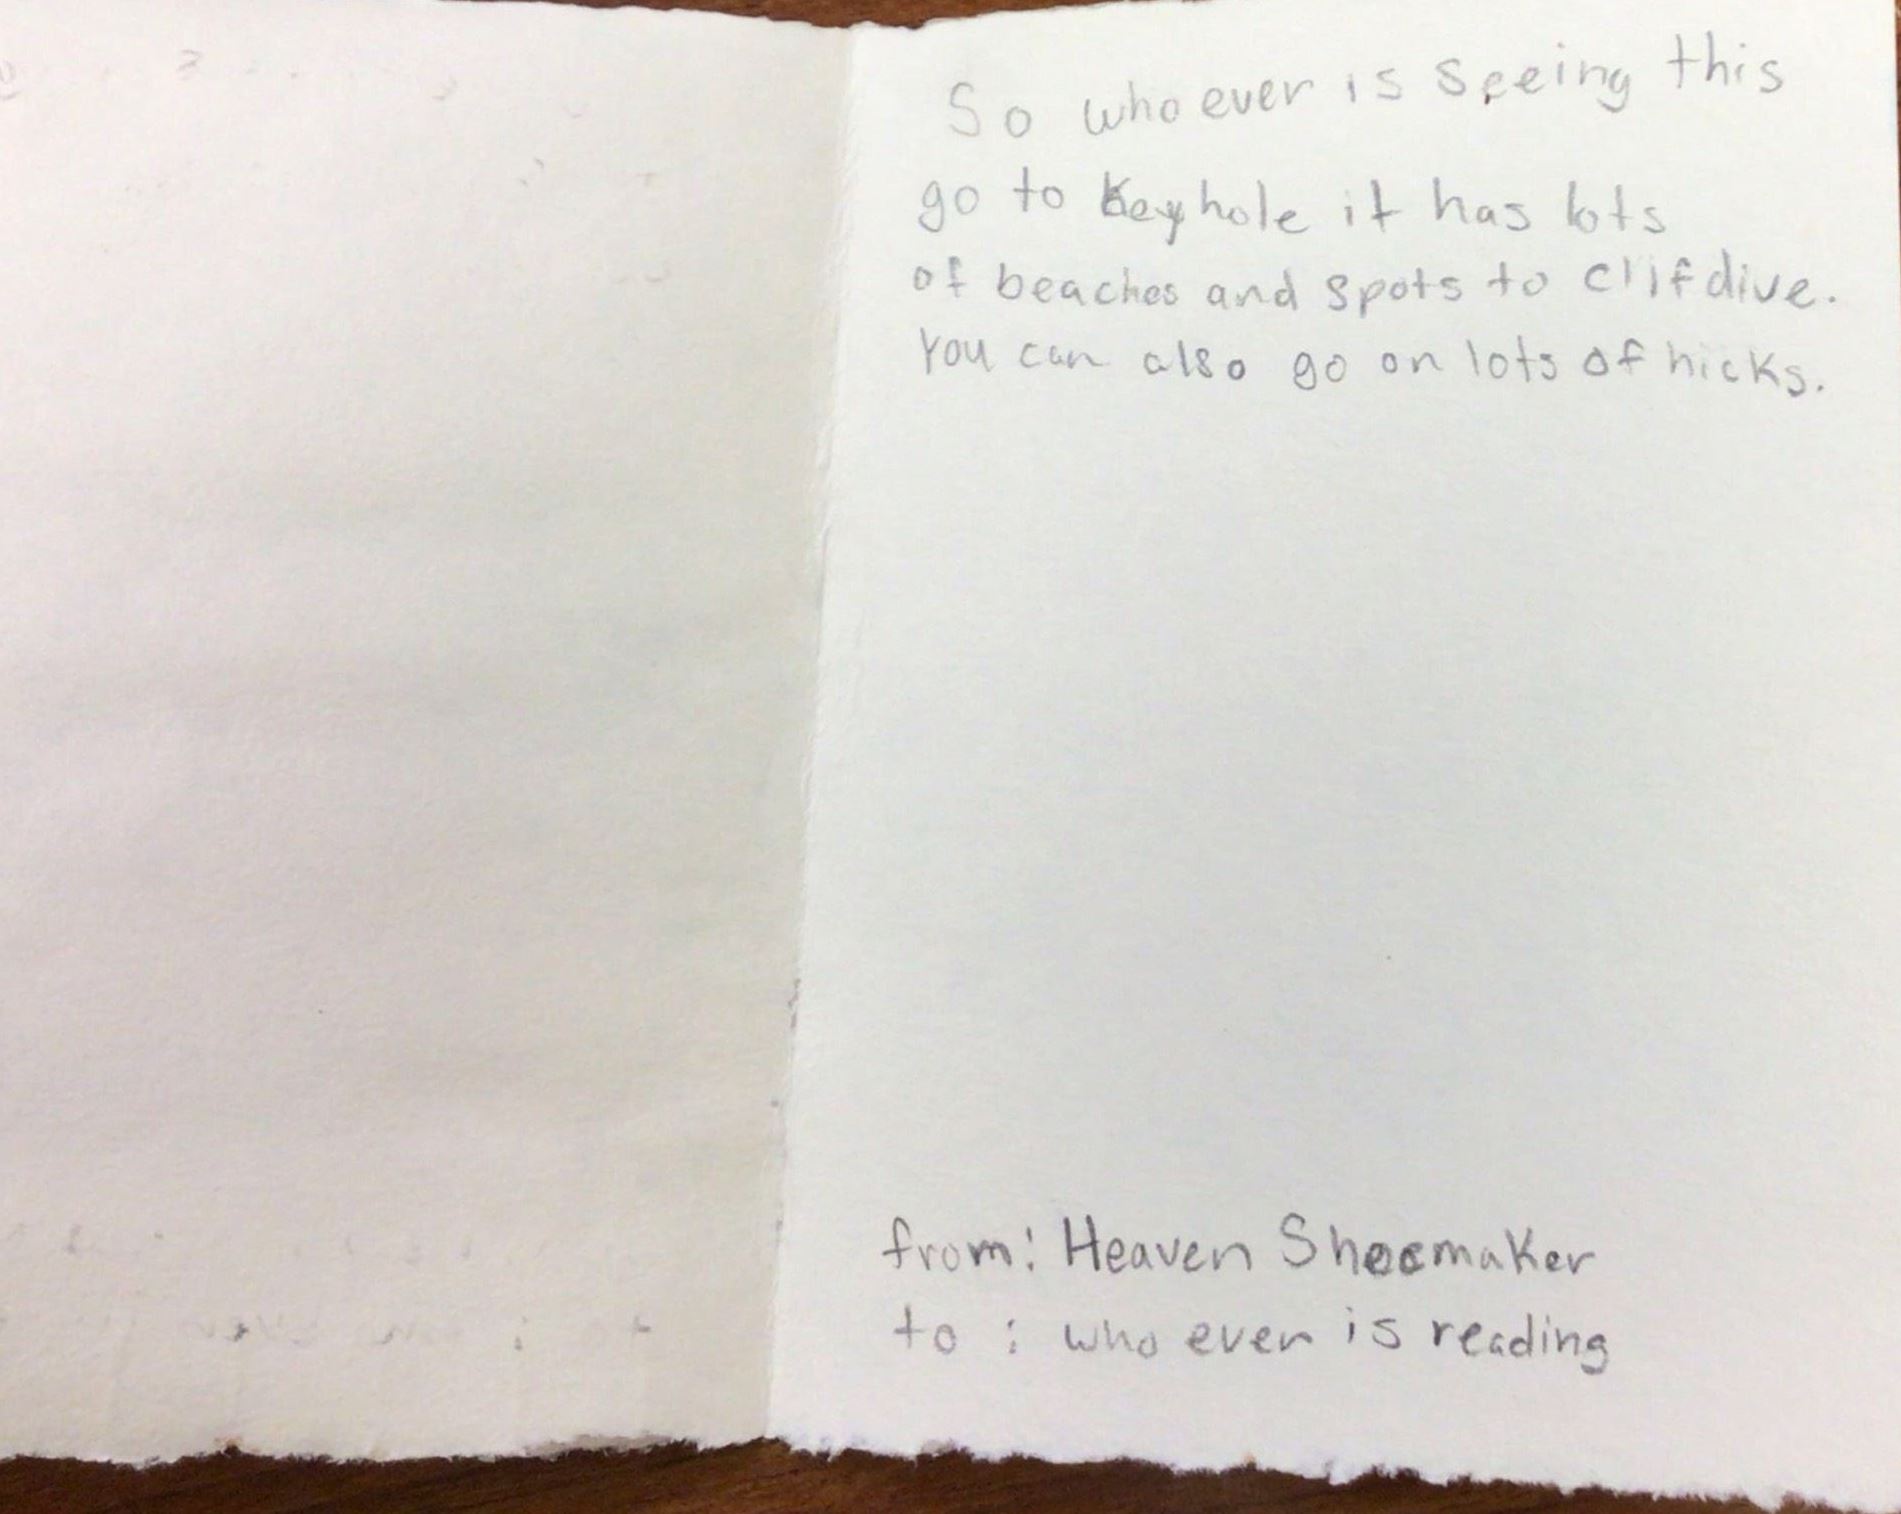 So who ever is seeing this
go to Keyhole it has lots
of beaches and spots to clifdive.
You can also go on lots of hicks.
from: Heaven Shoemaker
to : who ever is reading